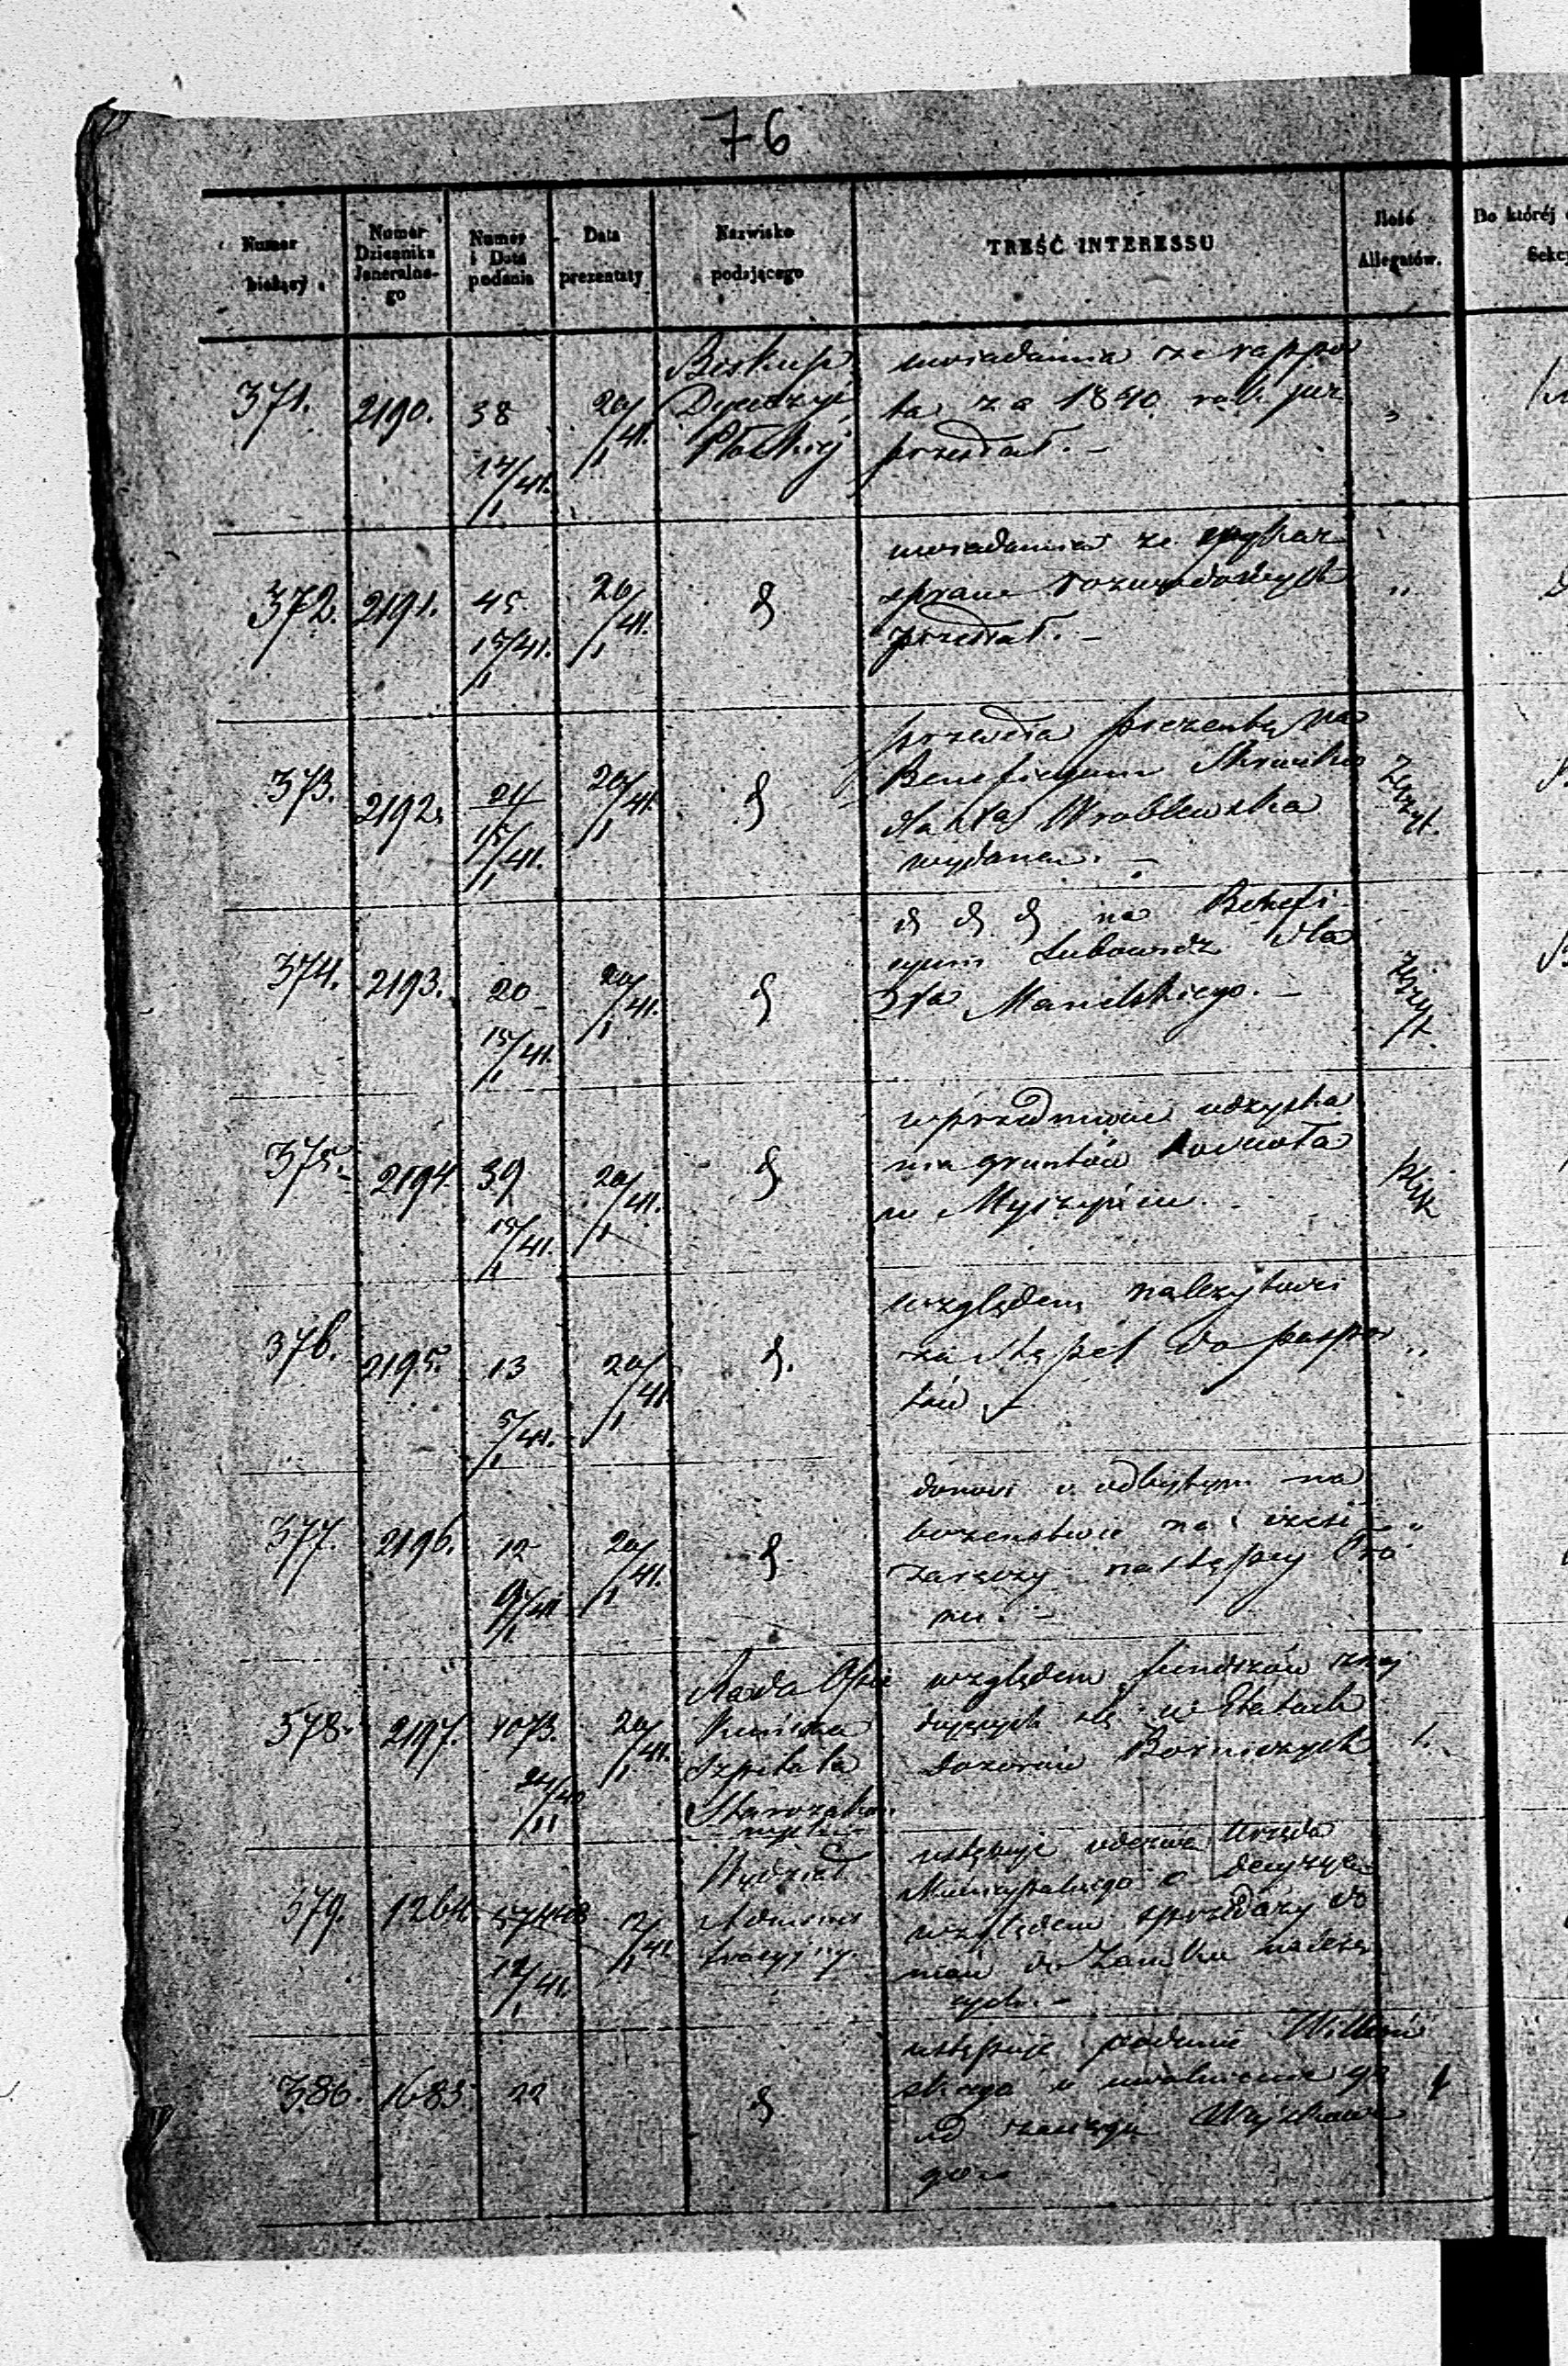 76
Numer bieżący
Numer Dziennika Jeneralne-go
Numer i Data podania
Data prezentaty
Nazwisko podającego
TREŚĆ INTERESSU
Ilość Allegatów.
Do któréj
Sekc
371. 2190. 38 14/I 41. 20/I 41.
Biskup
Dyecezyi
Płockiej
uwiadamia że rappor
ta za 1840 rok już
przesłał. —
372. 2191. 45 15/I 41. 20/I 41. d
uwiadamia że wykaz
spraw rozwodowych
przesłał. —
373. 2192. 21 15/I 41. 20/I 41. d
przesyła prezentę na
Beneficyum
dla Xa Wroblewskia
wydane. —
Zeszyt.
374. 2193. 20 15/I 41. 20/I 41. d
d d d na Benefi
cyum Lubowidz dla
Xa —
Zeszyt.
375. 2194. 39 15/I 41. 20/I 41. d
w przedmiocie odzyska
nia gruntów Kościoła
w
plik
376. 2195. 13 5/I 41. 20/I 41. d.
względem należytości
za stępel do paspor
tów
377. 2196. 12 9/I 41. 20/I 41. d
donosi o odbytym na
bożeństwie na
zaręczy następcy Tro
nu. —
378. 2197. 1073. 24/11 40 20/I 41.
Rada Opie
kuńcza
Szpitala
Starozakon
nych
względem funduszów znaj
dujących się w Etatach
dozorów Bożniczych
1.
379. 1264 12/I 41. 12/I 41
Wydział
Adminis
tracyjny
ustępuje odezwę Urzędu
Municypalnego o decyzyą
względem sprzedaży do
mów do Zamku należą
cych. —
380. 1683 22 d
ustępuje podanie
skiego o uwolnienie go
od zaciągu Wojskowe
go —
1